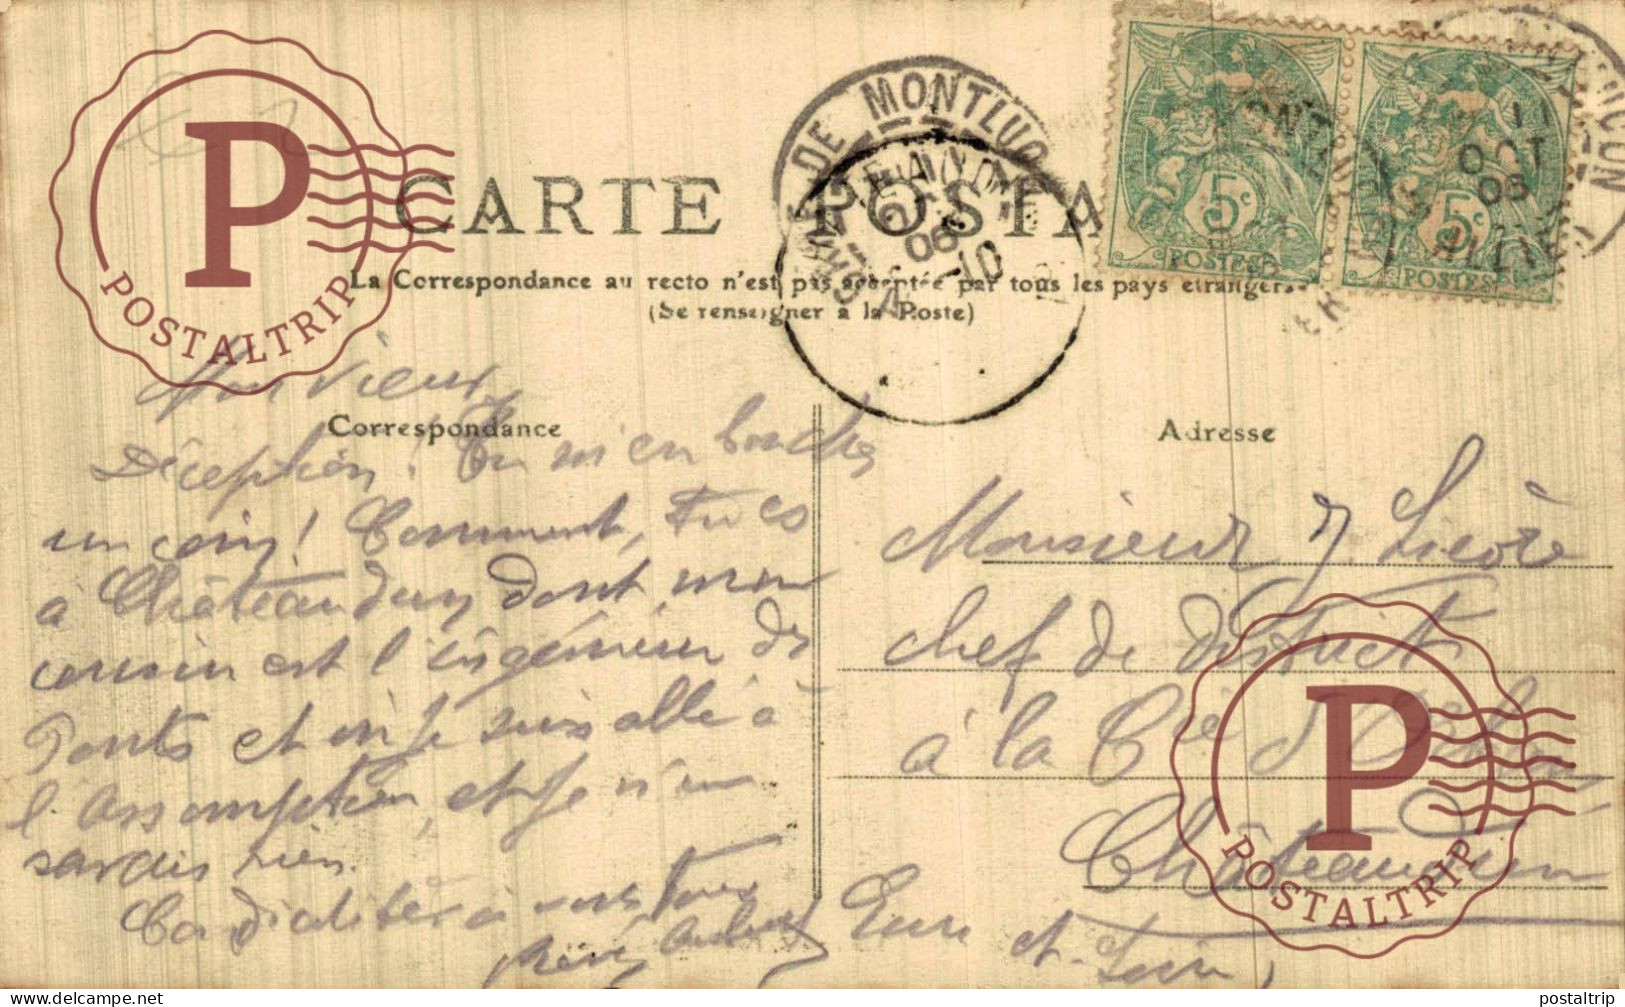 CARTE POSTA
La Correspondance au recto n'est pas acceptée par tous les pays étrangers
(Se renseigner à la Poste)
Correspondance
Adresse
DE MONTLUÇ
06
10
5c
5c
POSTES
POSTES
11
OCT
06
ALLIER
Mon vieux,
Déception! Tu m'en bouches
un coin! Comment, Tu es
à Châteaudun dont mon
cousin est l'ingénieur des
Ponts et où je suis allé à
l'assomption, et je n'en
savais rien.
Cordialités à vous tous
René
Monsieur J. Lièvre
chef de district
à la Cie d'Orléans
Châteaudun
Eure et Loir,
P
POSTALTRIP
P
POSTALTRIP
Delcampe.net
postaltrip